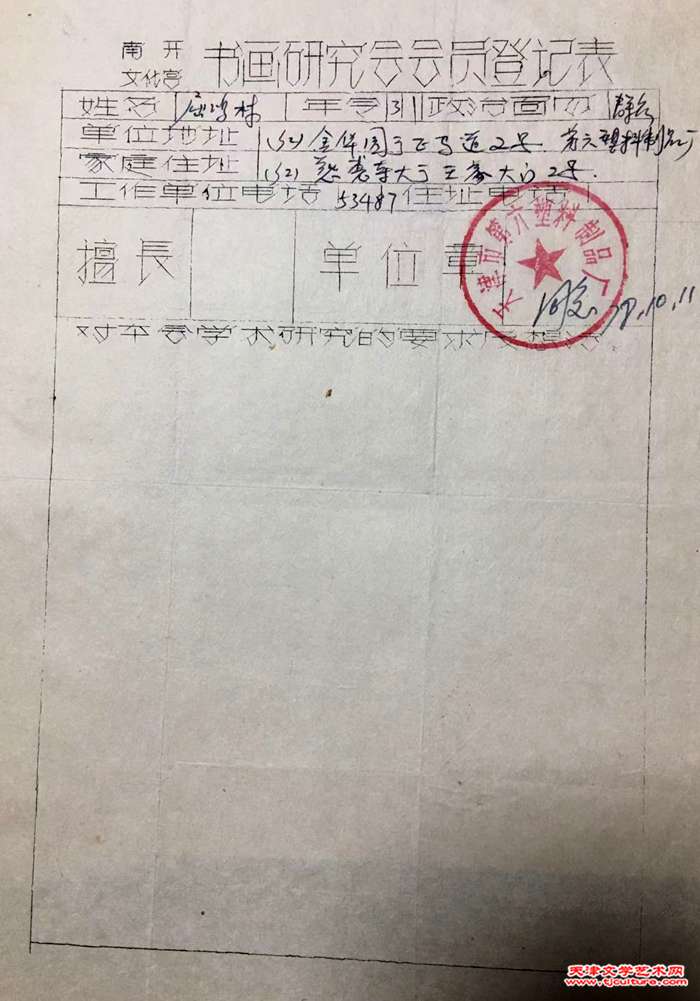 南开
文化宫
书画研究会会员登记表
姓名 年令 31 政治面历 群众
单位地址 (32) 金华园于飞马道2号 第六塑料制品厂
家庭住址 (32) 大于王家大门2号.
工作单位电话 53487 住址电话
擅長 单位章
天津市第六塑料制品厂
同意 78.10.11
对本会学术研究的要求及想法
天津文学艺术网
www.tjculture.com